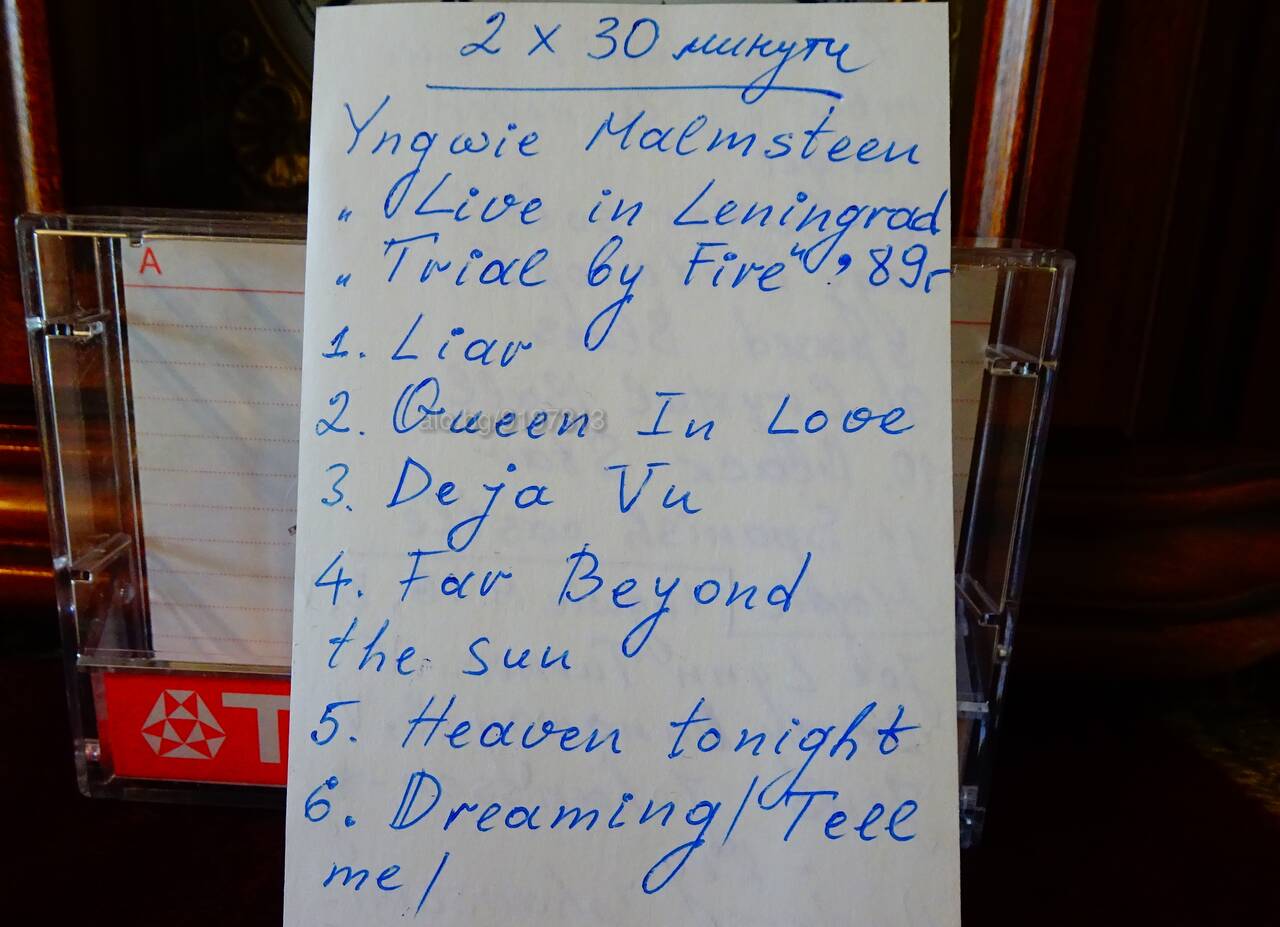 2 x 30 минути
Yngwie Malmsteen
„ Live in Leningrad
„ Trial by Fire“, 89г
1. Liar
2. Queen In Love
3. Deja Vu
4. Far Beyond
the sun
5. Heaven tonight
6. Dreaming/Tell
me/
A
T